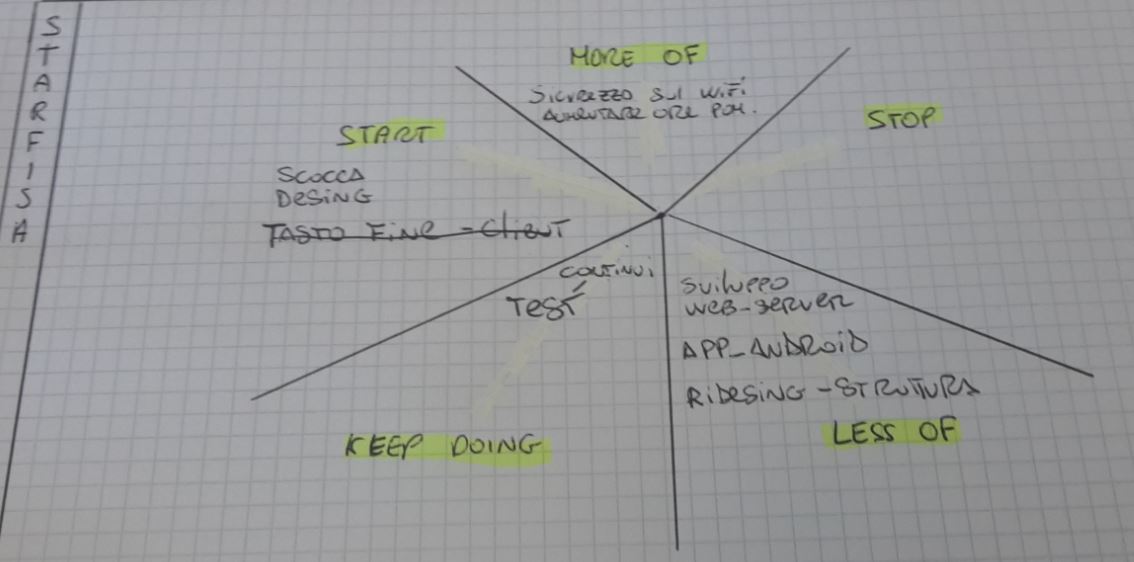 STARFISA
MORE OF
SICUREZZO SUL WIFI
AUMENTARE ORE POM.
STOP
START
SCOCCA
DESING
TASTO FINE - CLIENT
CONTINUI
TEST
KEEP DOING
SVILUPPO
WEB-SERVER
APP-ANDROID
RIDESING - STRUTURA
LESS OF